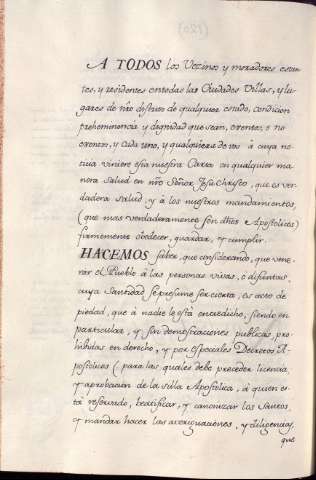 A TODOS los Vezinos y moradores estan-
tes, y residentes en todas las Ciudades Villas, y lu-
gares de nro distrito de qualquier estado, condicion
preheminencia y dignidad que sean, exentos, o no
exentos, y cada uno, y qualquiera de vos à cuya no-
ticia viniere esta nuestra Carta en qualquier ma-
nera Salud en nro Señor Jesu Christo, que es ver-
dadera salud, y à los nuestros mandamientos,
(que mas verdaderamente son dhos Apostolicos)
firmemente obedecer, guardar, y cumplir.
HACEMOS saber, que considerando, que vene-
rar el Pueblo à las personas vivas, o difuntas,
cuya Santidad se presume ser cierta, es acto de
piedad, que à nadie le està entredicho, siendo en
particular, y sin demostraciones publicas, pro-
hibidas en derecho, y por especiales Decretos A-
postolicos (para las quales debe preceder licencia,
y aprobacion de la silla Apostolica, à quien es-
tà reservado, beatificar, y canonizar los Santos,
y mandar hacer las averiguaciones, y diligencias,
que